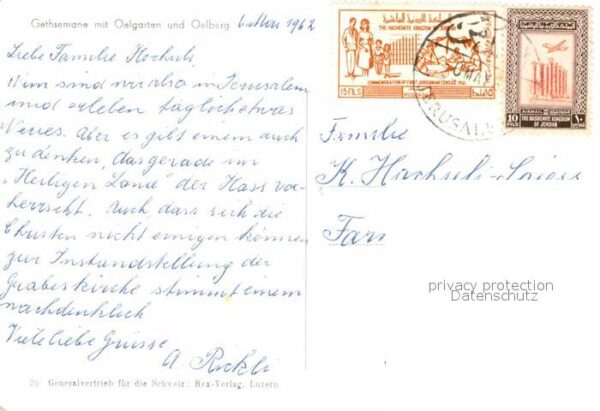 Gethsemane mit Oelgarten und Oelberg
6. Mai 1962
Liebe Familie Hochuli,
Nun sind wir also in Jerusalem
und erleben täglich etwas
Neues. Aber es gibt einem auch
zu denken, das gerade im
"Heiligen Land" der Hass vor-
herrscht. Auch, dass sich die
Christen nicht einigen können
zur Instandstellung der
Grabeskirche stimmt einem
nachdenklich
Viele liebe Grüsse
A. Rickli
26 Generalvertrieb für die Schweiz: Rex-Verlag, Luzern
THE HASHEMITE KINGDOM OF JORDAN
COMMEMORATION OF FIRST JORDANIAN CENSUS 1961
15 FILS
AIRMAIL
10 FILS
THE HASHEMITE KINGDOM
OF JORDAN
Familie
K. Hochuli-
Fa
privacy protection
Datenschutz